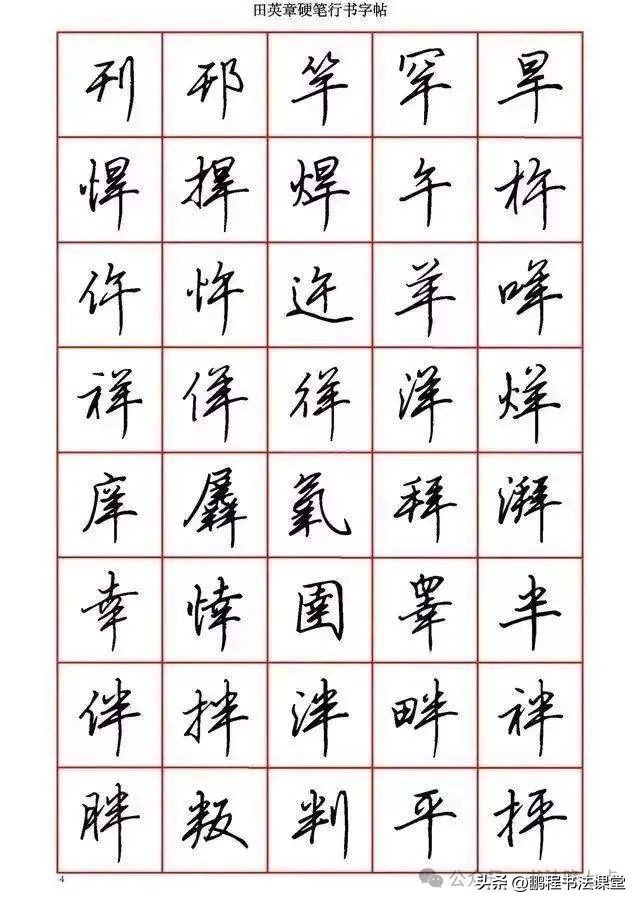 田英章硬笔行书字帖
刊 邗 竿 罕 旱
悍 捍 焊 午 杵
仵 忤 迕 羊 咩
祥 佯 徉 洋 烊
庠 羼 氧 拜 湃
幸 悻 圉 睾 半
伴 拌 泮 畔 袢
胖 叛 判 平 抨
4
公众号
头条@鹏程书法课堂